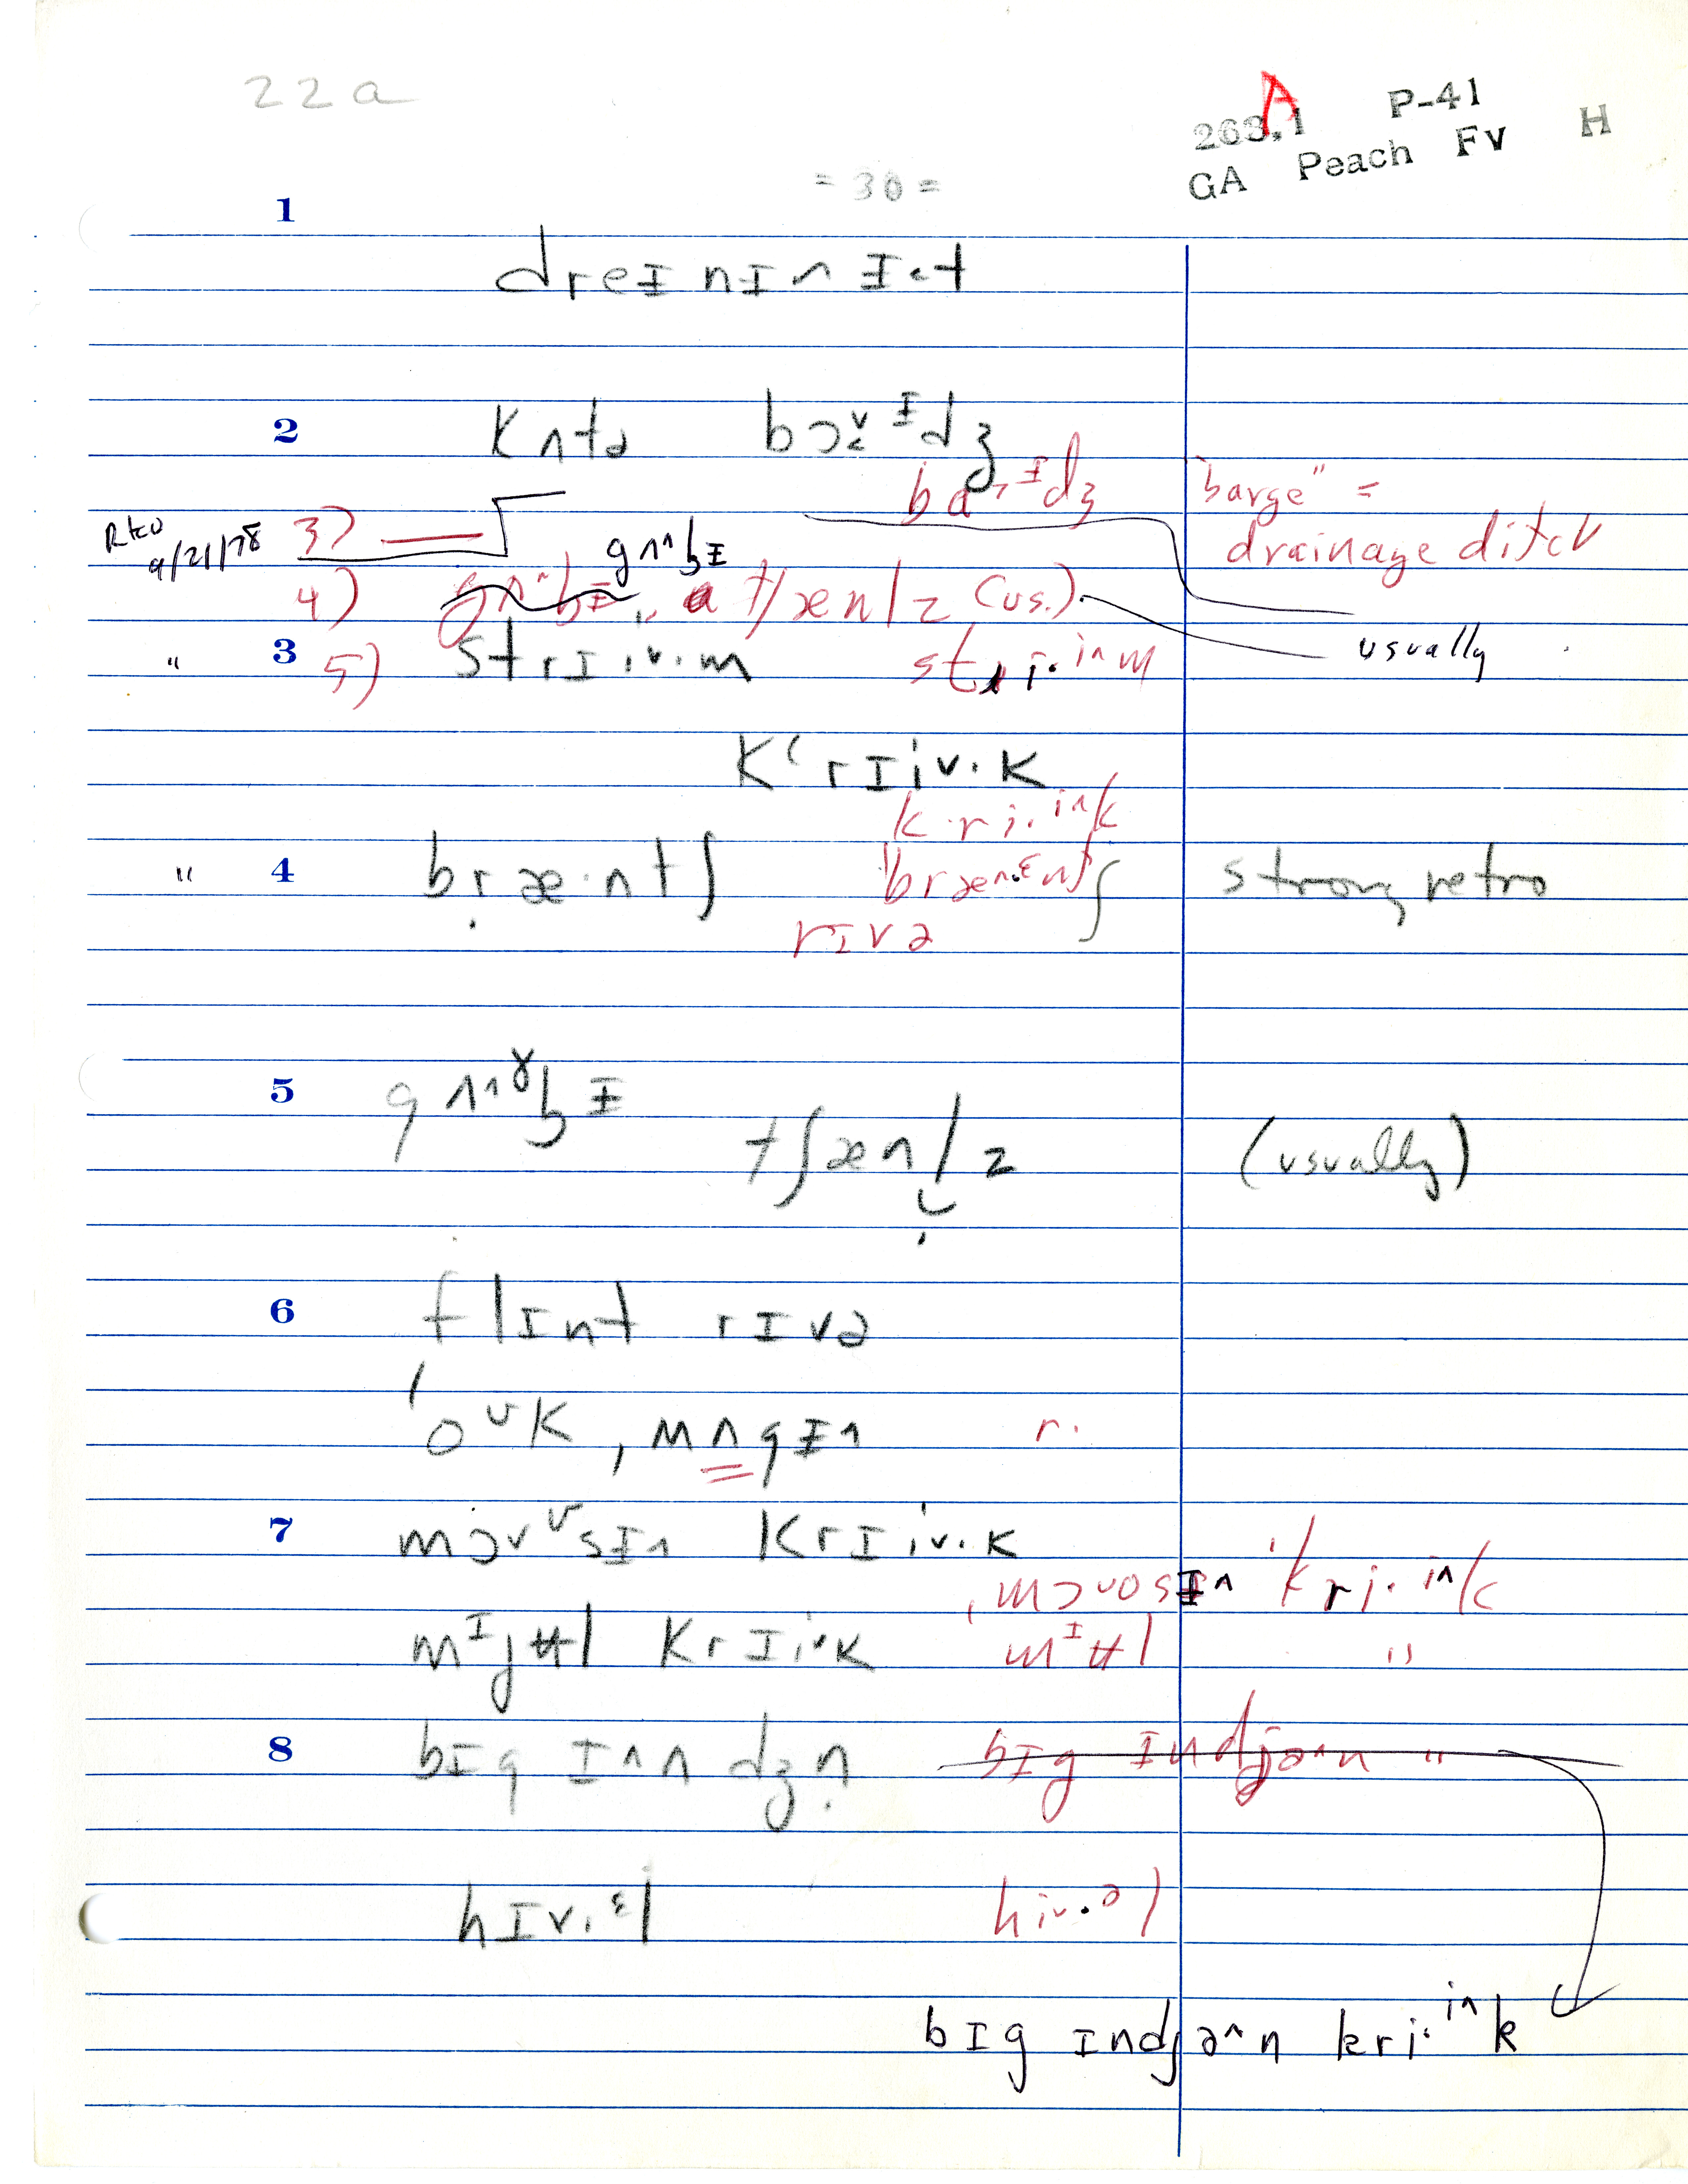 22a
263.1 A P-41 H
GA Peach FV
= 30 =
1
dreɪnɪ^ɪ.t
2 kʌtə bɔ˅ɪdʒ
ba˒ɪdʒ "barge" =
drainage ditch
RKO 9/21/78 3) —
gʌ^bɪ
4) tʃæn/z (us.)
usually
" 3 5) strɪiv.m stri.i^m
k'rɪiv.k
kri.i^k
" 4 bræ.ntʃ bræ^.ɛntʃ strong retro
rɪvə
5 gʌ^ɤbɪ
tʃæn/z (usually)
6 flɪnt rɪvə
'oʊk, mʌgɪ^ r.
7 mɔvʊsɪ^ krɪiv.k
ˌmɔvosɪ^ 'kri.i^k
mɪjʉl krɪi˅k mɪʉl "
8 bɪg ɪ^ndʒn̩ bɪg ɪndjə^n "
hɪv.ɛl hiv.əl
bɪg ɪndjə^n kri.i^k